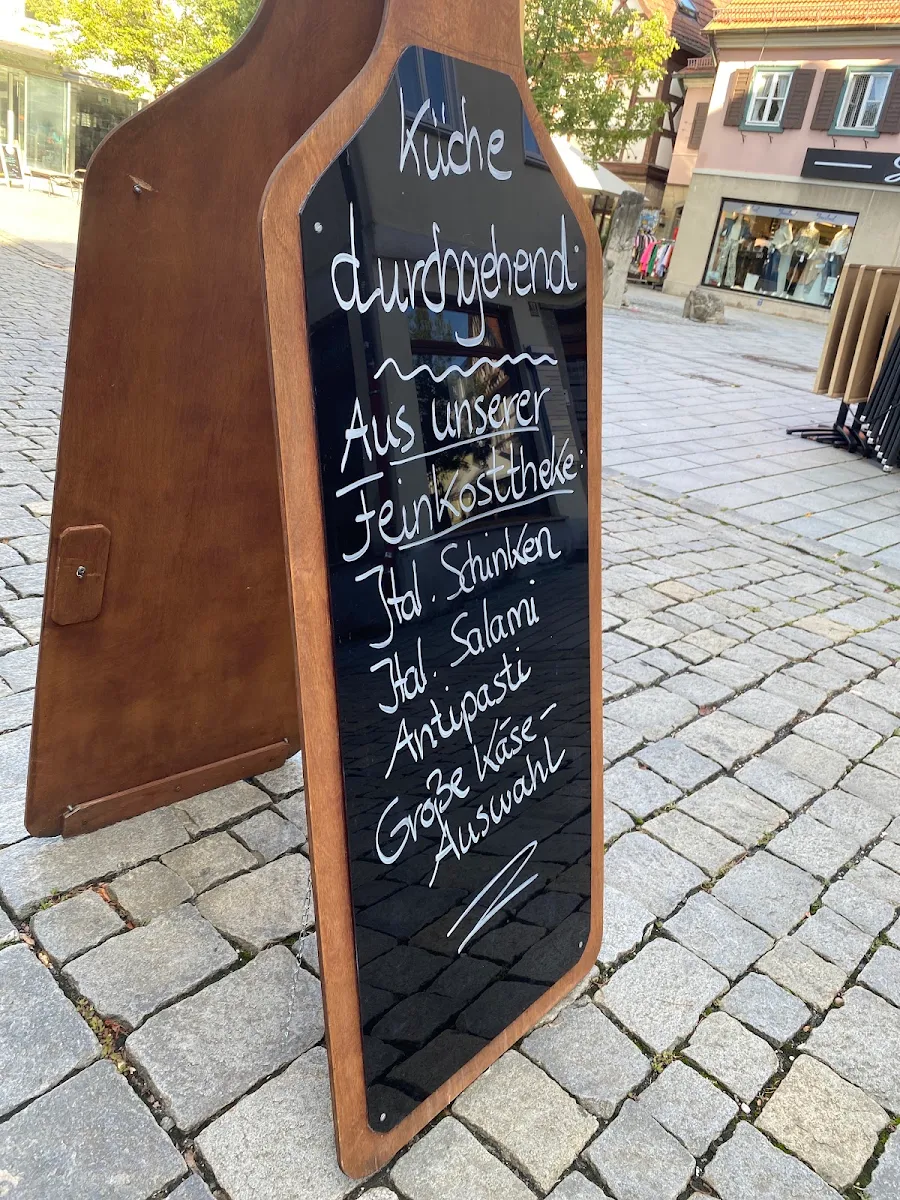 Küche
durchgehend
Aus unserer
Feinkosttheke:
Ital. Schinken
Ital. Salami
Antipasti
Große Käse-
Auswahl